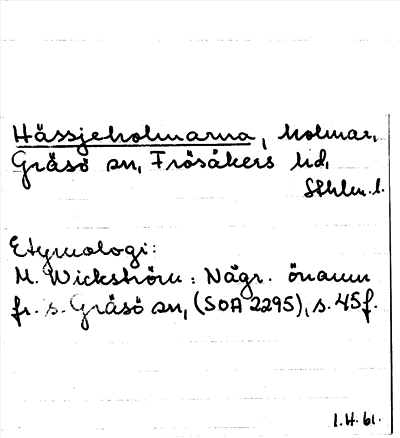 Hässjeholmarna, holmar,
Gräsö sn, Frösåkers hd,
Sthlm. l.
Etymologi:
M. Wickström: Någr. önamn
fr. s. Gräsö sn, (SOA 2295), s. 45 f.
I.H. 61.